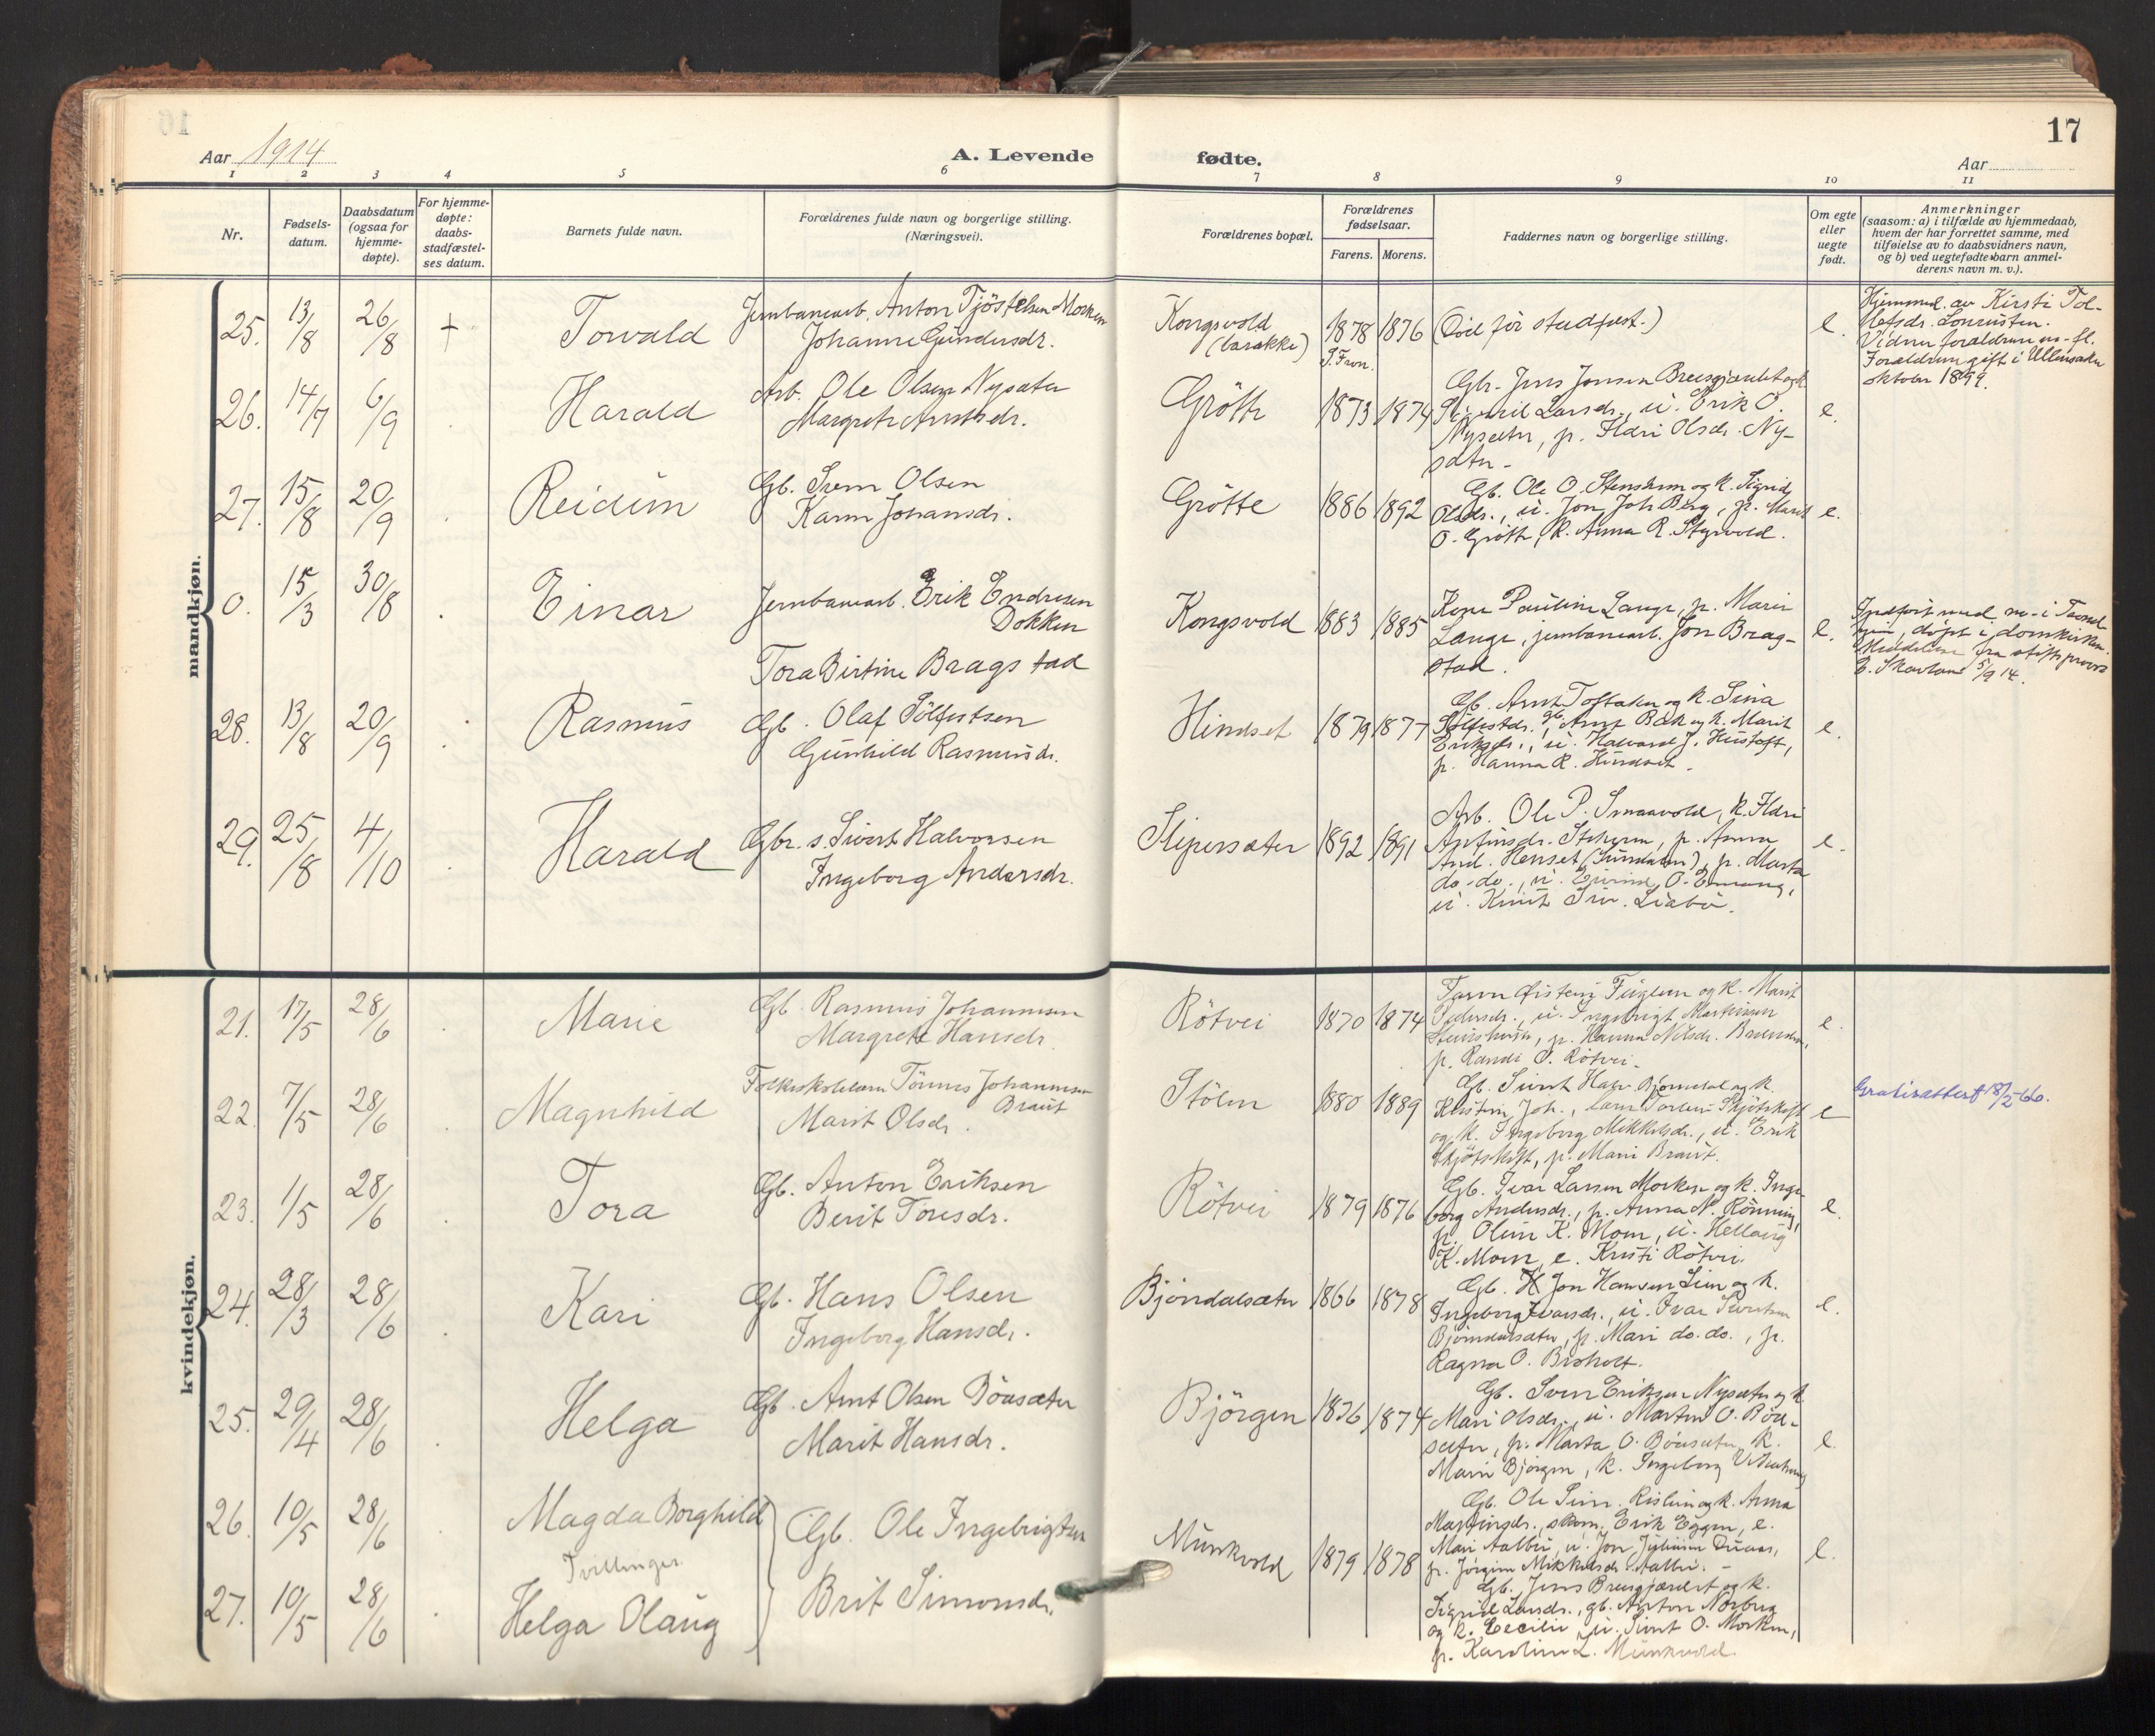 16
Aar 1914
A. Levende
fødte.
17
Aar
1 2 3 4 5 6 7 8 9 10 11
Nr.
Fødsels-
datum.
Daabsdatum
(ogsaa for
hjemme-
døpte).
For hjemme-
døpte:
daabs-
stadfæstel-
ses datum.
Barnets fulde navn.
Forældrenes fulde navn og borgerlige stilling.
(Næringsvei).
Forældrenes bopæl.
Forældrenes
fødselsaar.
Farens. Morens.
Faddernes navn og borgerlige stilling.
Om egte
eller
uegte
født.
Anmerkninger
(saasom: a) i tilfælde av hjemmedaab,
hvem der har forrettet samme, med
tilføielse av to daabsvidners navn,
og b) ved uegtefødte barn anmel-
derens navn m. v.).
mandkjøn.
25. 13/8 26/8 + Torvald
Jernbanearb. Anton Tjöstelsen Morken
Johanne Gundersdr.
Kongsvold
(barakke)
1878 1876
S. Fron.
(Död för stadfæst.)
e.
Hjemmed. av Kirsti Tol-
lefsdr.
Forældrene gift i Ullensaker
oktober 1899.
26. 14/7 6/9 Harald
Arb. Ole Olsen Nysæter
Margrete Arntsdr.
Grötte 1873 1874
Gbr. Jens Jonsen Breesgjærdet og k.
Sigrid Larsdr., u. Erik O.
Nysæter, p. Ildri Olsdr. Ny-
sæter-
e.
27. 15/8 20/9 Reidun
Gb. Svem Olsen
Karen Johansdr.
Grötte 1886 1892
Gb. Ole O. Stenshem og k. Sigrid
Olsdr., u. Jon Joh. Berg, p. Marit
O. Grötte, k. Anna R. Styrvold.
e.
0. 15/3 30/8 Einar
Jernbanearb. Erik Endresen
Dokken
Tora Birtine Bragstad
Kongsvold 1883 1885
Kone Pauline Lange, p. Marie
Lange, jernbanearb. Jon Brag-
stad.
e.
döpt i domkirken.
Meddelelse fra stiftsprovst
5/9 14.
28. 13/8 20/9 Rasmus
Gb. Olaf Sölfestsen
Gunhild Rasmusdr.
Hindset 1879 1877
Gb. Arnt Toftaker og k. Sina
Sölfestdr., gb. Arnt Bæk og k. Marit
Eriksdr., u. Halvard J. Hustoft,
p. Hanna R. Hindset.
e.
29. 25/8 4/10 Harald
Gbr. s. Sivert Halvorsen
Ingeborg Andersdr.
Slipersæter 1892 1891
Arb. Ole P. Smaavold, k. Ildri
Anfinsdr. p. Anna
And. Henset p. Marta
do-do., u. Eivind O.
u. Knut Siv. Liabø.
e.
kvindekjøn.
21. 17/5 28/6 Marie
Gb. Rasmus Johannesen
Margrete Hansdr.
Rötvei 1870 1874
Marit
Pedersdr., u. Ingebrigt Martinsen
p. Hanna Nilsdr.
p. Randi O. Rötvei.
e.
22. 7/5 28/6 Magnhild
Folkeskolelærer Tönnes Johannesen
Braut
Marit Olsdr.
Stölen 1880 1889
Gb. Sivert Halv. Bjørndal og k.
Kristine Joh., Skjötskift
og k. Ingeborg Mikkelsdr., u. Erik
Skjötskift, p. Marie Braut.
e
Gratisattest 18/2-66.
23. 1/5 28/6 Tora
Gb. Anton Eriksen
Berit Toresdr.
Rötvei 1879 1876
Gb. Ivar Larsen Morken og k. Inge-
borg Andersdr., p. Anna N. Rönning,
p. Oline K. Moen, u. Hellaug
K. Moen, e. Kristi Rötvei.
e.
24. 28/3 28/6 Kari
Gb. Hans Olsen
Ingeborg Hansdr.
Bjöndalsæter 1866 1878
Gb. Jon Hansen Lien og k.
Ingeborg Ivarsdr., u. Ivar Sivertsen
Bjöndalsæter, p. Mari do. do., p.
Ragna O. Broholt.
e.
25. 29/4 28/6 Helga
Gb. Arnt Olsen Böasæter
Marit Hansdr.
Björgen 1876 1874
Gb. Sven Eriksen Nysæter og k.
Mari Olsdr., u. Martin O. Böa-
sæter, p. Marta O. Böasæter, k.
Marie Björgen, k. Ingeborg
e.
26. 10/5 28/6 Magda Borghild
Tvillinger.
27. 10/5 28/6 Helga Olaug
Gb. Ole Ingebrigtsen
Brit Simonsdr.
Munkvold 1879 1878
Gb. Ole Sim. Rislien og k. Anna
Martinsdr., Erik Eggen, e.
Mari Aalbu, u. Jon
p. Jörgine Mikkelsdr. Aalbu. -
Gb. Jens Breesgjærdet og k.
Sigrid Larsdr., gb. Anton Norberg
og k. Cecilie, u. Sivert O. Morken,
p. Karoline L. Munkvold
e.